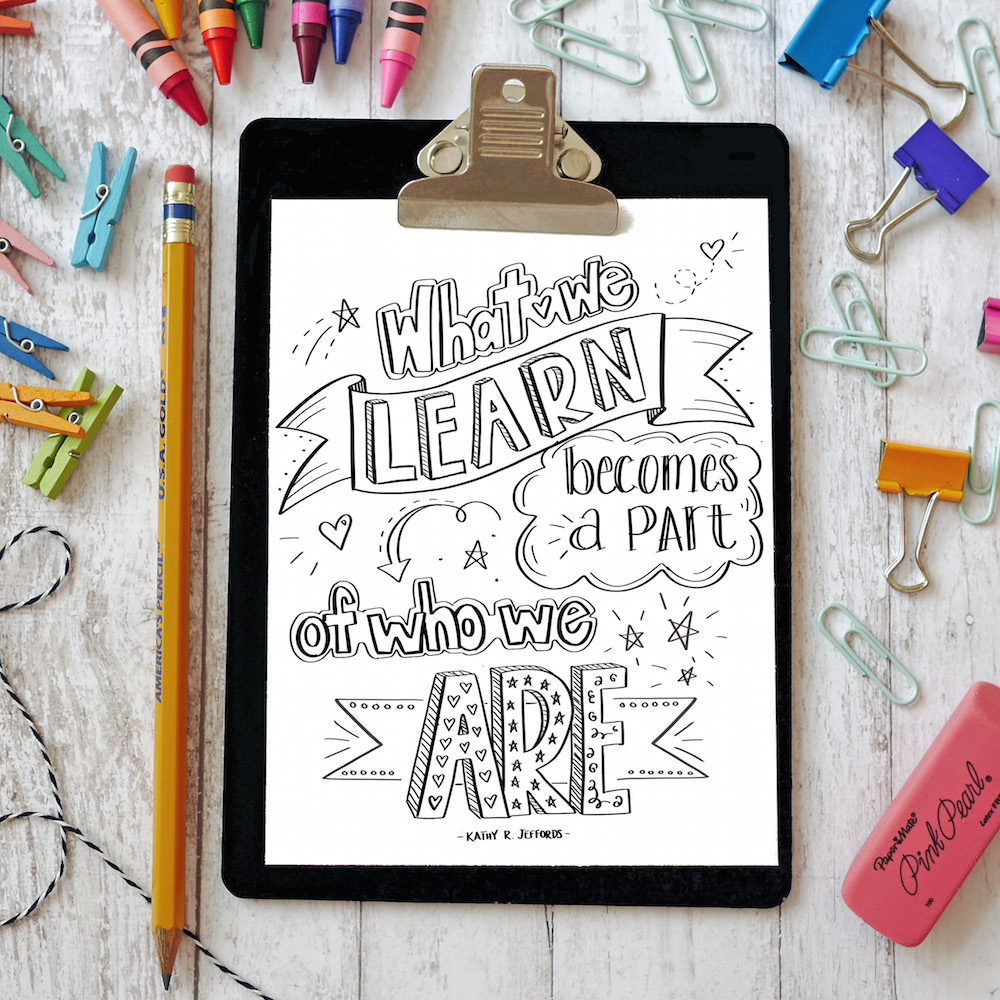 What we
LEARN
becomes
a PART
of who we
ARE
- KATHY R. JEFFORDS -
AMERICA'S PENCIL™ U.S.A. GOLD®
Paper Mate®
Pink Pearl®
100